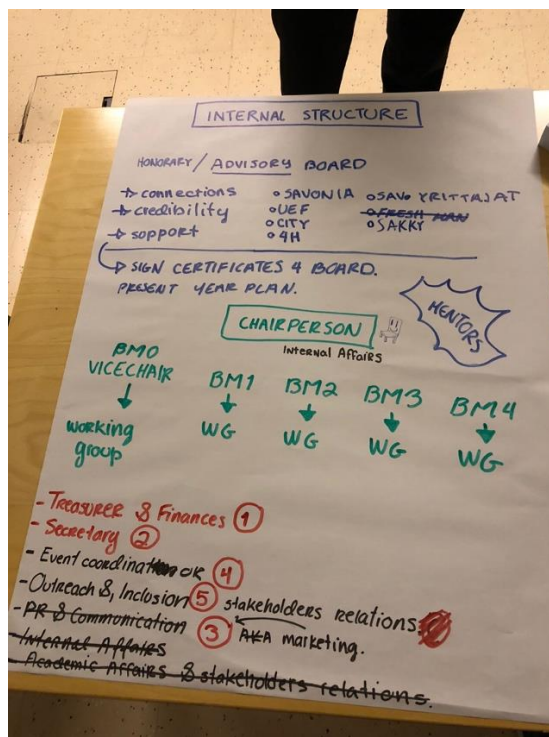 INTERNAL STRUCTURE
HONORARY / ADVISORY BOARD
→ connections
→ credibility
→ support
o SAVONIA
o UEF
o CITY
o 4H
o SAVO YRITTAJAT
o FRESH MAN
o SAKKY
→ SIGN CERTIFICATES 4 BOARD.
PRESENT YEAR PLAN.
MENTORS
CHAIRPERSON
Internal Affairs
BM0
VICECHAIR
working
group
BM1
WG
BM2
WG
BM3
WG
BM4
WG
- Treasurer & Finances 1
- Secretary 2
- Event coordinator 4
- Outreach & Inclusion 5 stakeholders relations
- PR & Communication 3 AKA marketing.
- Internal Affairs
- Academic Affairs & stakeholders relations.